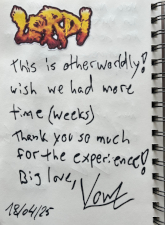 LORDi
This is otherworldly!
wish we had more
time (weeks)
Thank you so much
for the experience!
Big love,
18/04/25